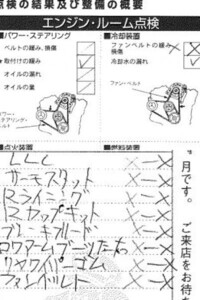 点検の結果及び整備の概要
エンジン・ルーム点検
■パワー・ステアリング
ベルトの緩み、損傷
*取付けの緩み
オイルの漏れ
オイルの量
パワー・
ステアリング・
ベルト
■冷却装置
ファンベルトの緩み、損傷
冷却水の漏れ
ファン・ベルト
■点火装置
■燃料装置
LLC
サーモスタット
Rライニング
Rカップキット
ブレーキフルード
ロワアームブーツ左右
リヤワイパーゴム
ファンベルト
月です。
ご来店をお待